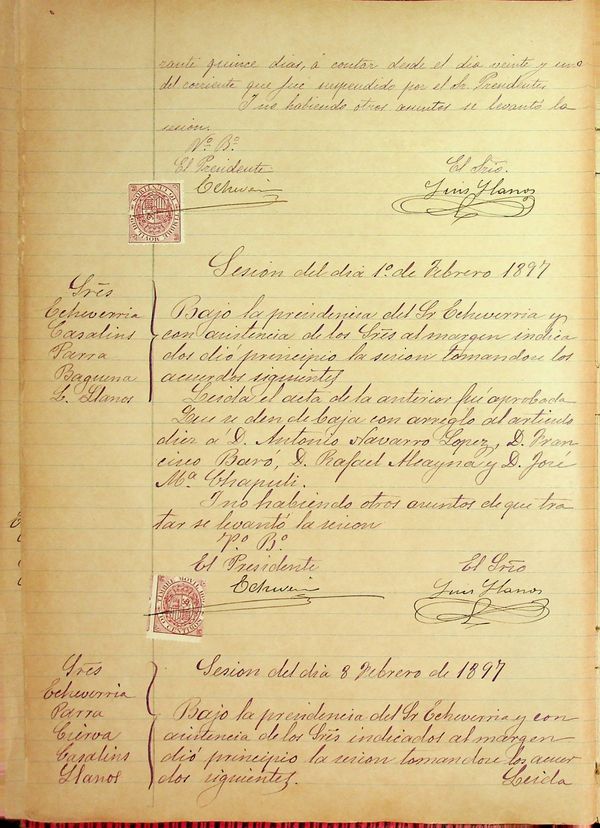 rante quince dias, á contar desde el dia veinte y uno
del corriente que fué suspendido por el Sr. Presidente.
I no habiendo otros asuntos se levantó la
sesion.
Vº Bº
El Presidente
El Srio.
Echeverria
Luis Llanos
TIMBRE MOVIL
Sesion del dia 1º de Febrero 1897
Srēs
Echeverria
Casalins
Parra
Baguena
L. Llanos
Bajo la presidencia del Sr Echeverria y
con asistencia de los Srēs al margen indica
dos dió principio la sesion tomandose los
acuerdos siguientes
Leida el acta de la anterior fué aprobada
Que se den de baja con arreglo al articulo
diez a D. Antonio Navarro Lopez, D. Fran
cisco Baró, D. Rafael Alcayna y D. José
Mª Chapuli.
I no habiendo otros asuntos de que tra
tar se levantó la sesion
Vº Bº
El Presidente
El Srio
Echeverria
Luis Llanos
TIMBRE MOVIL
Sesion del dia 8 Febrero de 1897
Srēs
Echeverria
Parra
Cierva
Casalins
Llanos
Bajo la presidencia del Sr Echeverria y con
asistencia de los Srēs indicados al margen
dió principio la sesion tomandose los acuer
dos siguientes. Leida